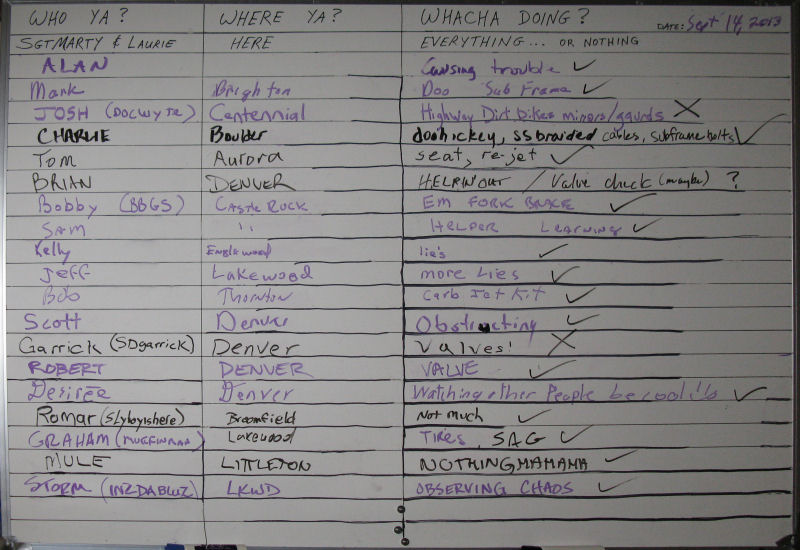 WHO YA? WHERE YA? WHACHA DOING? DATE: Sept 14, 2013
SGTMARTY & LAURIE HERE EVERYTHING... OR NOTHING
ALAN Causing trouble ✓
Mark Brighton Doo Sub Frame ✓
JOSH (DOCWYTE) Centennial Highway Dirt bikes mirrors/gaurds X
CHARLIE Boulder doohickey, SS braided cables, subframe bolts ✓
Tom Aurora seat, re-jet ✓
BRIAN DENVER HELPIN OUT / Valve check (maybe) ?
Bobby (BBGS) CASTLE ROCK EM FORK BRACE ✓
SAM " HELPER LEARNING ✓
Kelly Englewood lie's ✓
Jeff Lakewood more Lies ✓
Bob Thornton Carb Jet Kit ✓
Scott Denver Obstructing ✓
Garrick (SDgarrick) Denver Valves! X
ROBERT DENVER VALVE ✓
Desirée Denver Watching other People be cool ✓
Romar (Slyboyishere) Broomfield Not much ✓
GRAHAM Lakewood Tires, SAG ✓
MULE LITTLETON NOTHING MAMAMA ✓
STORM (INZDABLUZ) LKWD OBSERVING CHAOS ✓